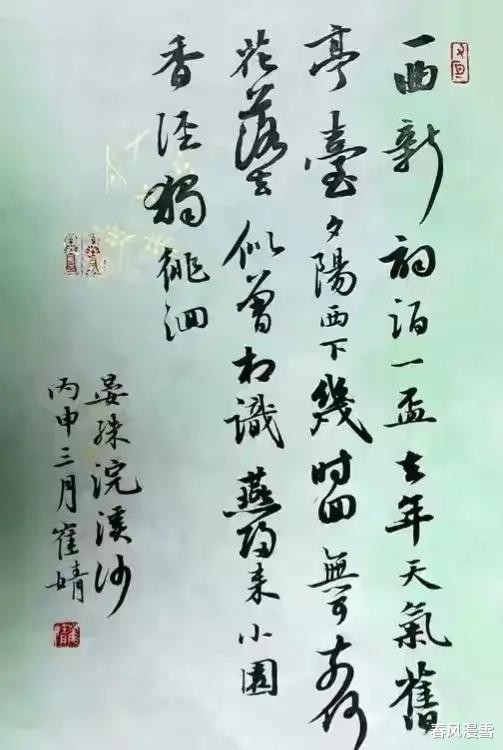 一曲新詞酒一盃去年天氣舊
亭臺夕陽西下幾时回無可奈何
花落去似曾相識燕歸来小園
香径獨徘徊
晏殊浣溪沙
丙申三月崔婧
春风漫雪